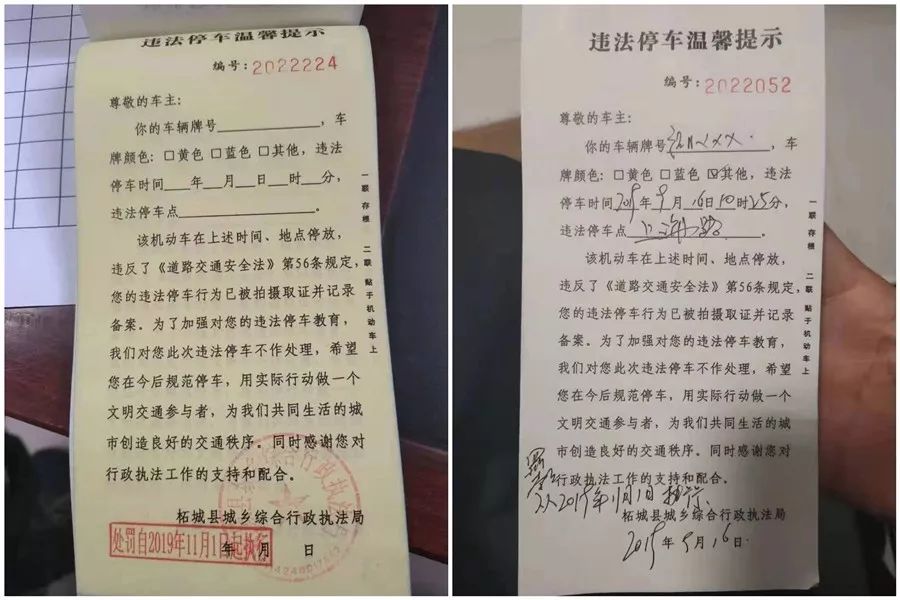 违法停车温馨提示
编号：2022224
尊敬的车主：
你的车辆牌号，车
牌颜色：□黄色 □蓝色 □其他，违法
停车时间 年 月 日 时 分，
违法停车点 。
该机动车在上述时间、地点停放，
违反了《道路交通安全法》第56条规定，
您的违法停车行为已被拍摄取证并记录
备案。为了加强对您的违法停车教育，
我们对您此次违法停车不作处理，希望
您在今后规范停车，用实际行动做一个
文明交通参与者，为我们共同生活的城
市创造良好的交通秩序。同时感谢您对
行政执法工作的支持和配合。
柘城县城乡综合行政执法局
年 月 日
处罚自2019年11月1日起执行
一联 存根 二联 贴于机动车上
违法停车温馨提示
编号：2022052
尊敬的车主：
你的车辆牌号，车
牌颜色：□黄色 □蓝色 ☑其他，违法
停车时间2019年9月16日10时25分，
违法停车点 。
该机动车在上述时间、地点停放，
违反了《道路交通安全法》第56条规定，
您的违法停车行为已被拍摄取证并记录
备案。为了加强对您的违法停车教育，
我们对您此次违法停车不作处理，希望
您在今后规范停车，用实际行动做一个
文明交通参与者，为我们共同生活的城
市创造良好的交通秩序。同时感谢您对
行政执法工作的支持和配合。
从2019年11月1日执行
柘城县城乡综合行政执法局
2019年9月16日
一联 存根 二联 贴于机动车上